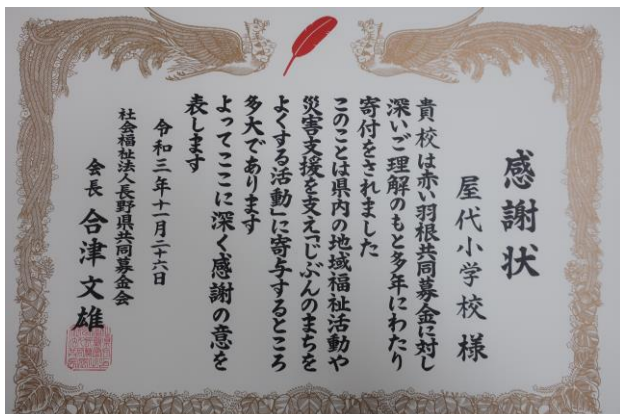 感謝状
屋代小学校 様
貴校は赤い羽根共同募金に対し
深いご理解のもと多年にわたり
寄付をされました
このことは県内の地域福祉活動や
災害支援を支え「じぶんのまちを
よくする活動」に寄与するところ
多大であります
よってここに深く感謝の意を
表します
令和三年十一月二十六日
社会福祉法人長野県共同募金会
会長 合津文雄